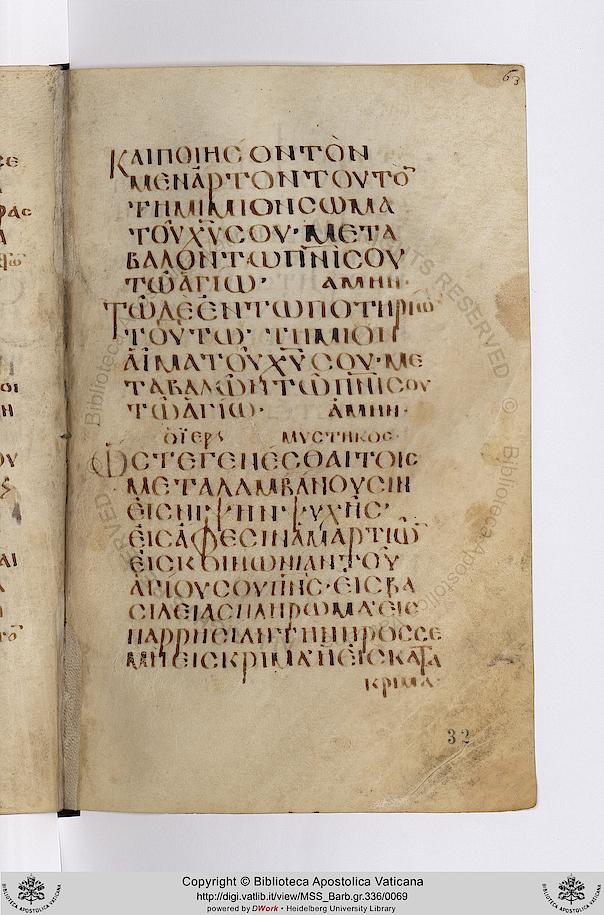 63
ΚΑΙΠΟΙΗCΟΝΤῸΝ
ΜΕΝΆΡΤΟΝΤΟΥΤΟ̅
ΤΗΜΙΜΙΟΝCΩΜΑ
ΤΟΥΧ̅Υ̅CΟΥ·ΜΕΤΑ
ΒΑΛΟΝΤΩΠ̅Ν̅ΙCΟΥ
ΤΩἈΓΙΩ· ΑΜΗΝ·
ΤΩΔῈἘΝΤΩΠΟΤΗΡΙΩ
ΤΟΥΤΩ· ΤΗΜΙΟΝ
ΑἷΜΑΤΟΥΧ̅Υ̅CΟΥ·ΜΕ
ΤΑΒΑΛΩΝΤΩΠ̅Ν̅ΙCΟΥ
ΤΩἈΓΙΩ· ΑΜΗΝ·
ὉἹΕΡς ΜΥCΤΙΚΟC·
ὭCΤΕΓΕΝΈCΘΑΙΤΟΙC
ΜΕΤΑΛΑΜΒΆΝΟΥCΙΝ
ΕἸCΝΙΨΗΝΨΥΧΗC·
ΕἸCἌΦΕCΙΝἉΜΑΡΤΙΩ̅
ΕἸCΚΟΙΝΩΝΊΑΝΤΟΥ
ἉΓΊΟΥCΟΥΠ̅Ν̅C·ΕἸCΒΑ
CΙΛΕΊΑCΠΛΗΡΩΜΑ·ΕΙC
ΠΑΡΡΗCΊΑΝΤΗΝΠΡΟCCΕ
ΜΗΕΙCΚΡΙΜΑ·ἪΕἸCΚΑΤΑ
ΚΡΙΜΑ·
32
Copyright © Biblioteca Apostolica Vaticana
http://digi.vatlib.it/view/MSS_Barb.gr.336/0069
powered by DWork • Heidelberg University Library